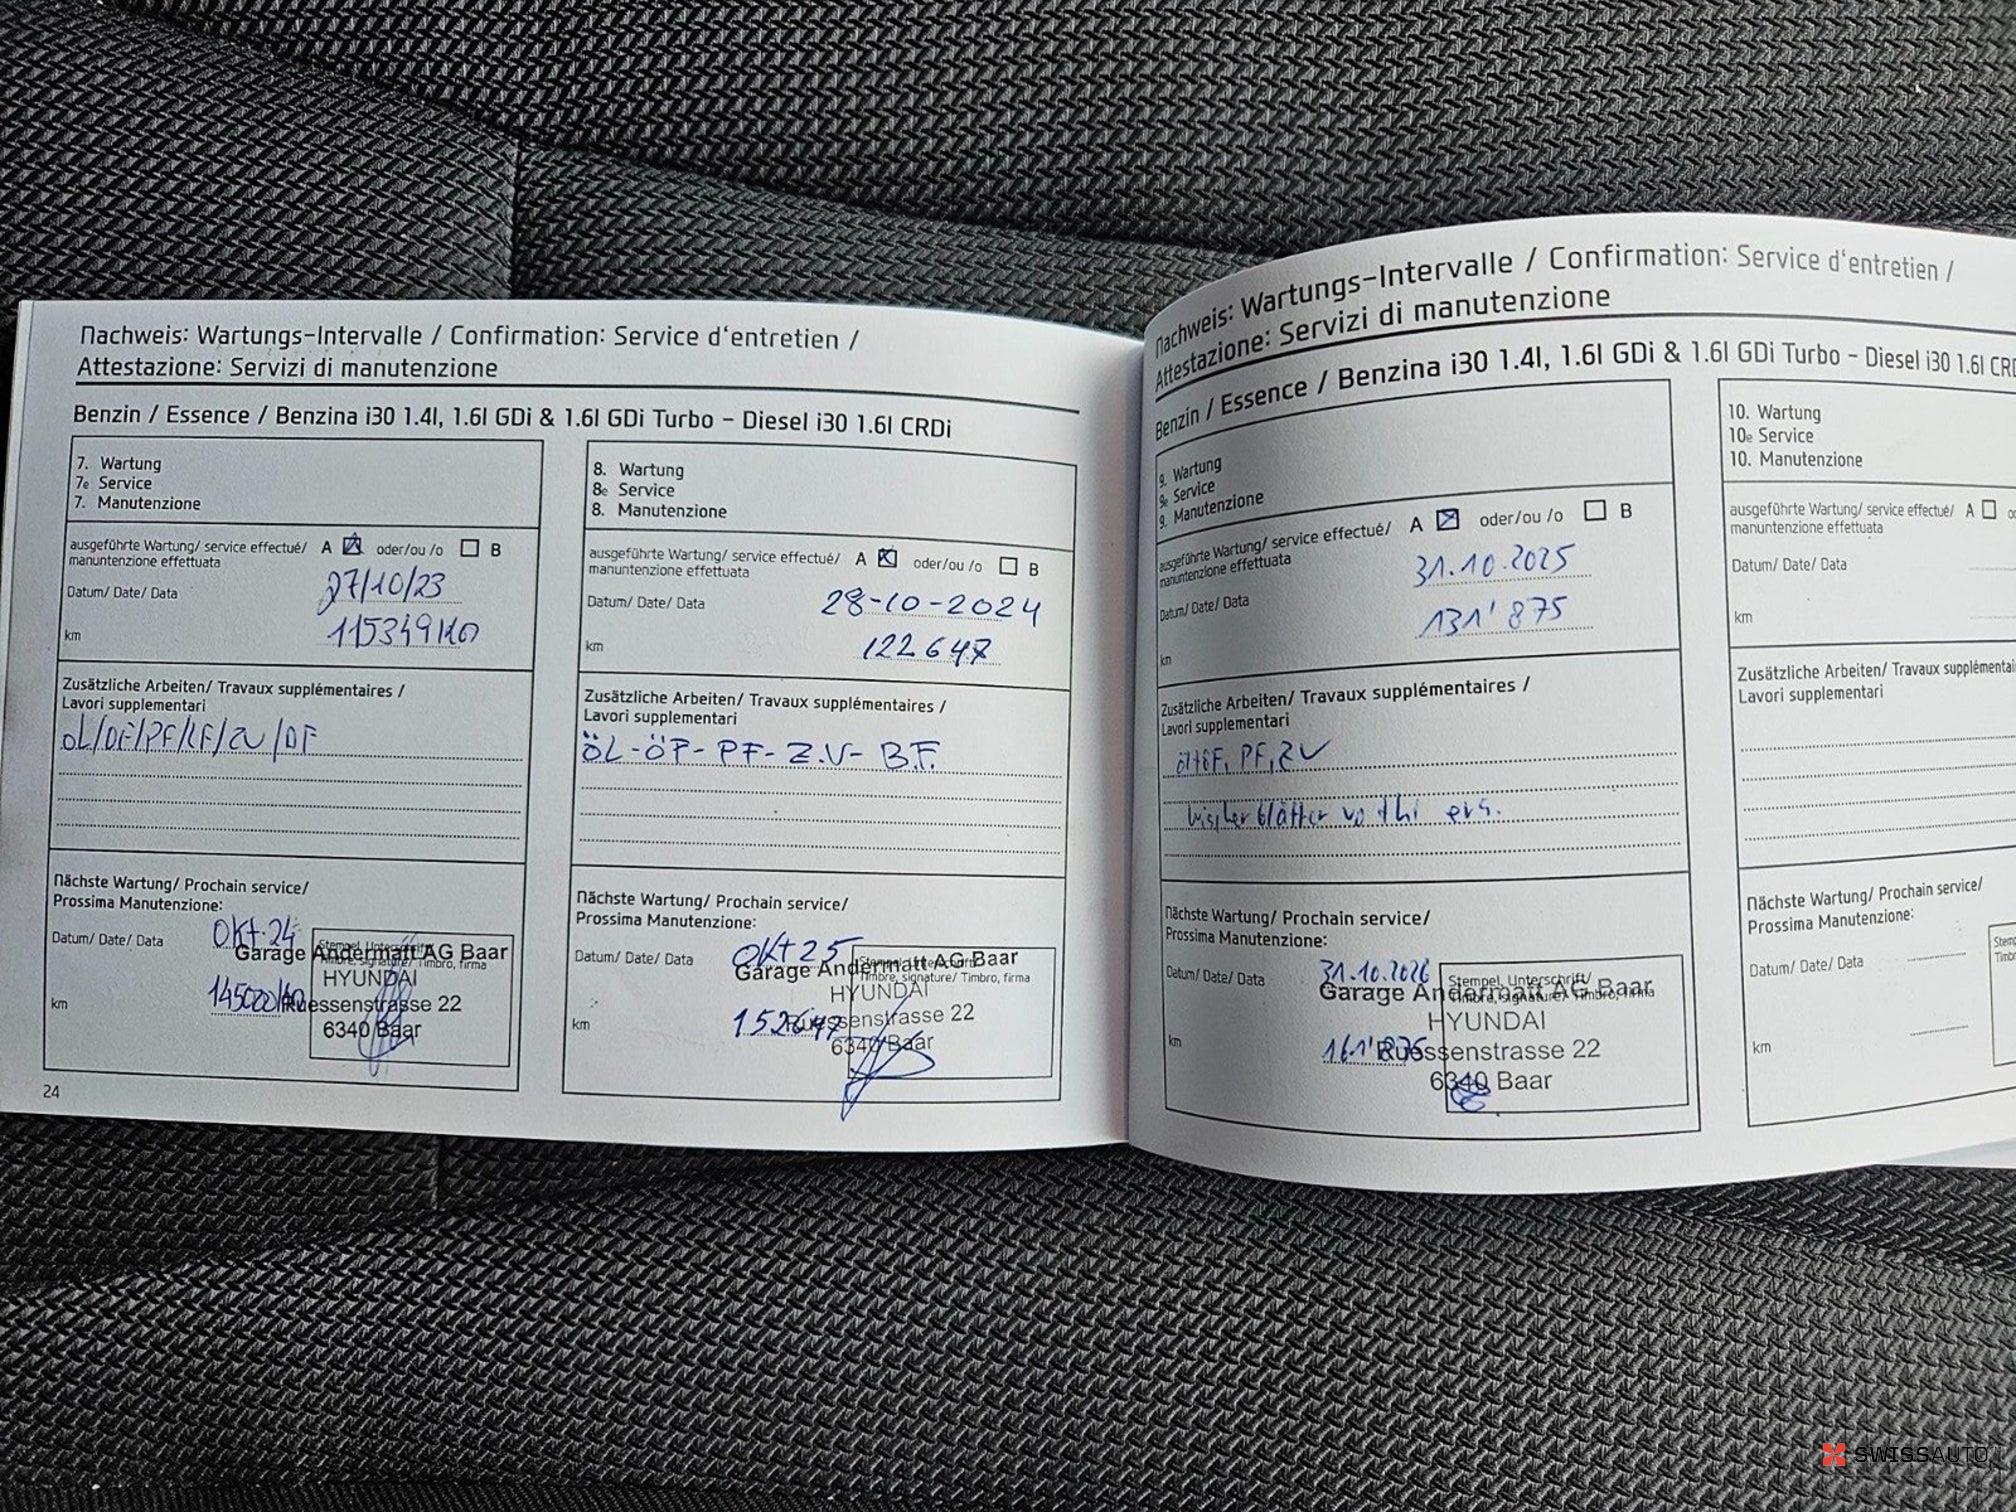 Nachweis: Wartungs-Intervalle / Confirmation: Service d'entretien /
Attestazione: Servizi di manutenzione
Benzin / Essence / Benzina i30 1.4l, 1.6l GDi & 1.6l GDi Turbo - Diesel i30 1.6l CRDi
7. Wartung
7e Service
7. Manutenzione
ausgeführte Wartung/ service effectué/ A oder/ou /o B
manuntenzione effettuata
Datum/ Date/ Data 27/10/23
km 115349 km
Zusätzliche Arbeiten/ Travaux supplémentaires /
Lavori supplementari
ÖL/ÖF/PF/LF/ZV/DF
Nächste Wartung/ Prochain service/
Prossima Manutenzione:
Datum/ Date/ Data Okt. 24
km 145000
Stempel, Unterschrift/
Timbre, signature/ Timbro, firma
Garage Andermatt AG Baar
HYUNDAI
Ruessenstrasse 22
6340 Baar
24
8. Wartung
8e Service
8. Manutenzione
ausgeführte Wartung/ service effectué/ A oder/ou /o B
manuntenzione effettuata
Datum/ Date/ Data 28-10-2024
km 122647
Zusätzliche Arbeiten/ Travaux supplémentaires /
Lavori supplementari
ÖL-ÖF-PF-Z.V-B.F.
Nächste Wartung/ Prochain service/
Prossima Manutenzione:
Datum/ Date/ Data Okt 25
km 152647
Stempel, Unterschrift/
Timbre, signature/ Timbro, firma
Garage Andermatt AG Baar
HYUNDAI
Ruessenstrasse 22
6340 Baar
Nachweis: Wartungs-Intervalle / Confirmation: Service d'entretien /
Attestazione: Servizi di manutenzione
Benzin / Essence / Benzina i30 1.4l, 1.6l GDi & 1.6l GDi Turbo - Diesel i30 1.6l CRD
9. Wartung
9e Service
9. Manutenzione
ausgeführte Wartung/ service effectué/ A oder/ou /o B
manuntenzione effettuata
Datum/ Date/ Data 31.10.2025
km 131'875
Zusätzliche Arbeiten/ Travaux supplémentaires /
Lavori supplementari
Öl+öF, PF, ZV
Wischerblätter vo+hi ers.
Nächste Wartung/ Prochain service/
Prossima Manutenzione:
Datum/ Date/ Data 31.10.2026
km 161'875
Stempel, Unterschrift/
Timbre, signature/ Timbro, firma
Garage Andermatt AG Baar
HYUNDAI
Ruessenstrasse 22
6340 Baar
10. Wartung
10e Service
10. Manutenzione
ausgeführte Wartung/ service effectué/ A
manuntenzione effettuata
Datum/ Date/ Data
km
Zusätzliche Arbeiten/ Travaux supplémentai
Lavori supplementari
Nächste Wartung/ Prochain service/
Prossima Manutenzione:
Datum/ Date/ Data
km
Stemp
Timbr
SWISSAUTO